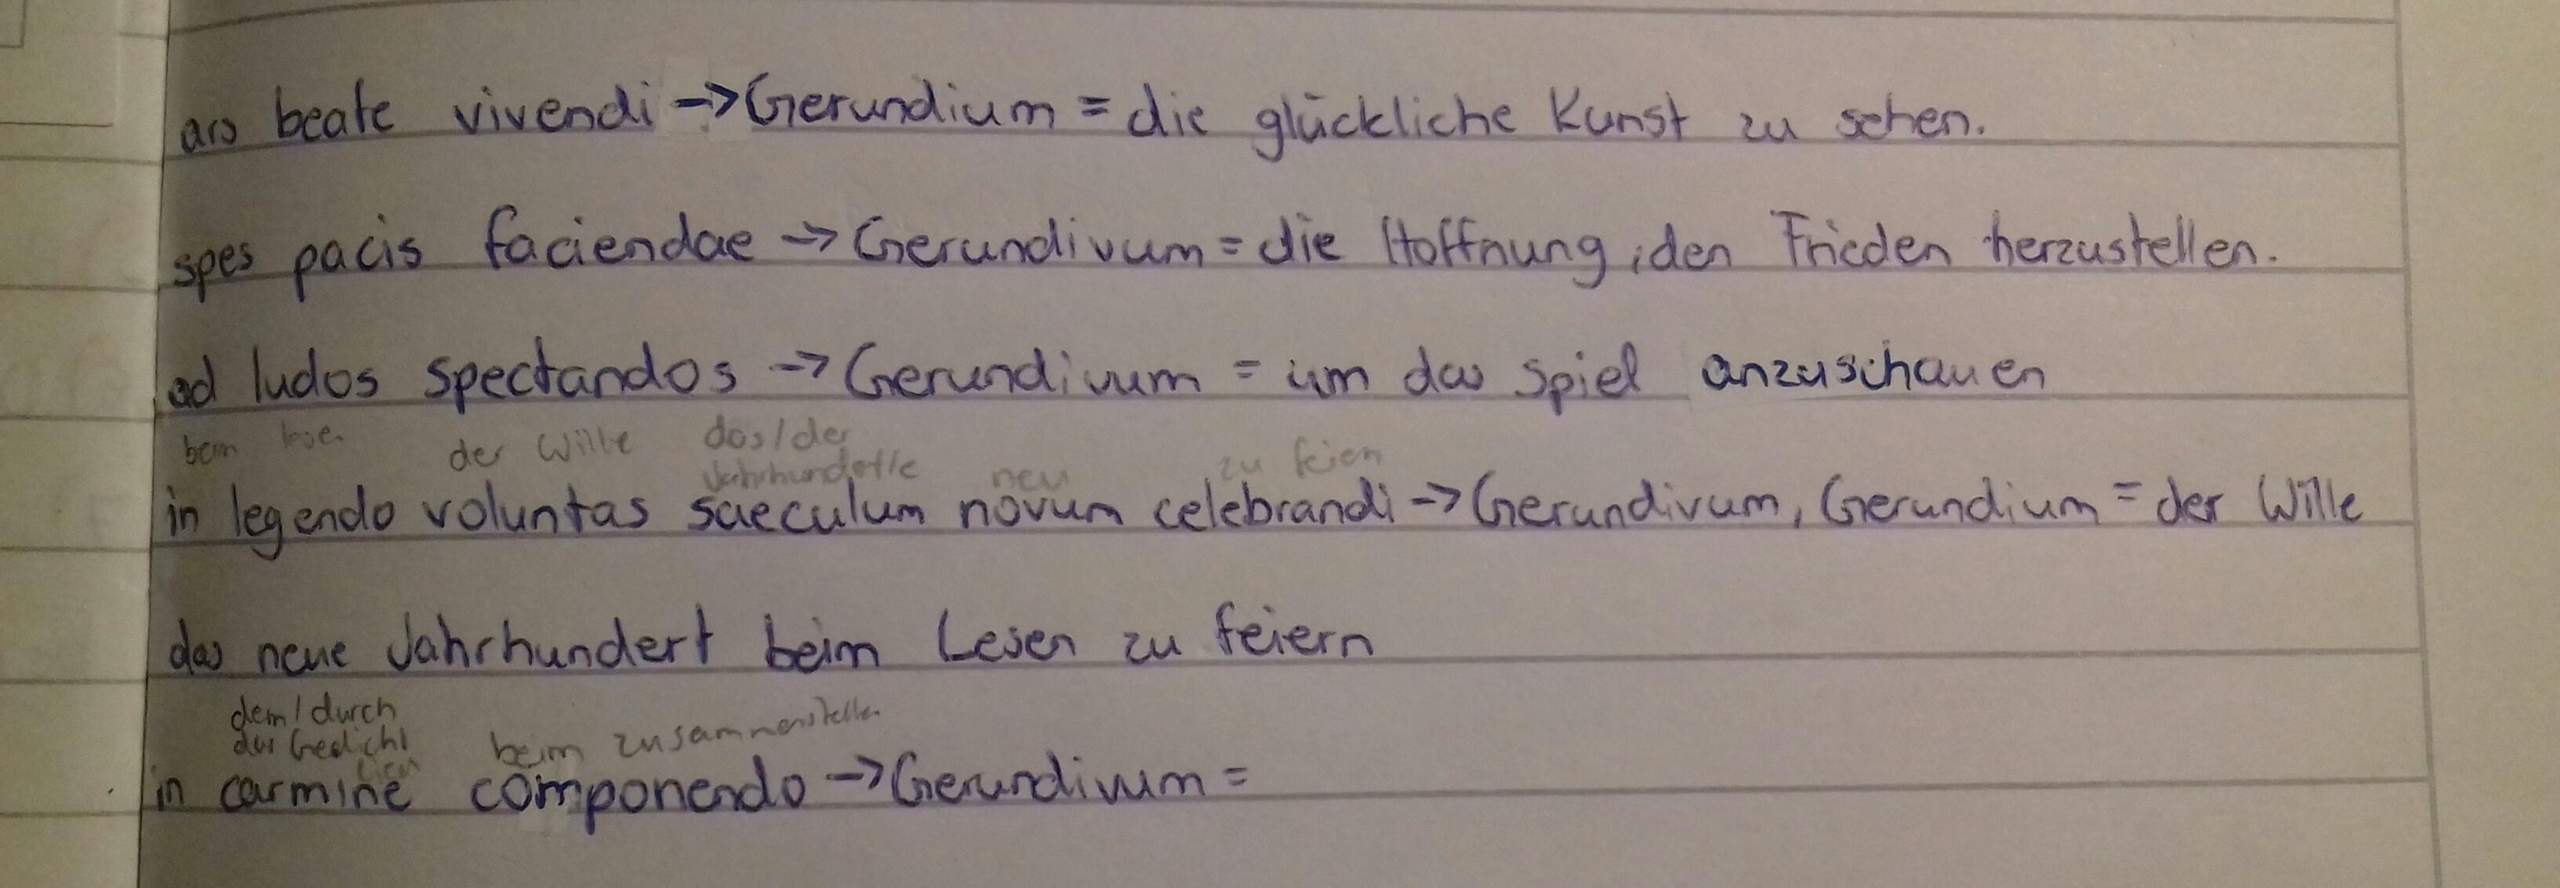 ars beate vivendi -> Gerundium = die glückliche Kunst zu sehen.
spes pacis faciendae -> Gerundivum = die Hoffnung, den Frieden herzustellen.
ad ludos spectandos -> Gerundivum = um das Spiel anzuschauen
beim lesen der Wille das/der
Jahrhunderte neu zu feien
in legendo voluntas saeculum novum celebrandi -> Gerundivum, Gerundium = der Wille
das neue Jahrhundert beim Lesen zu feiern
dem/durch
das Gedicht beim zusammenstellen
in carmine componendo -> Gerundivum =